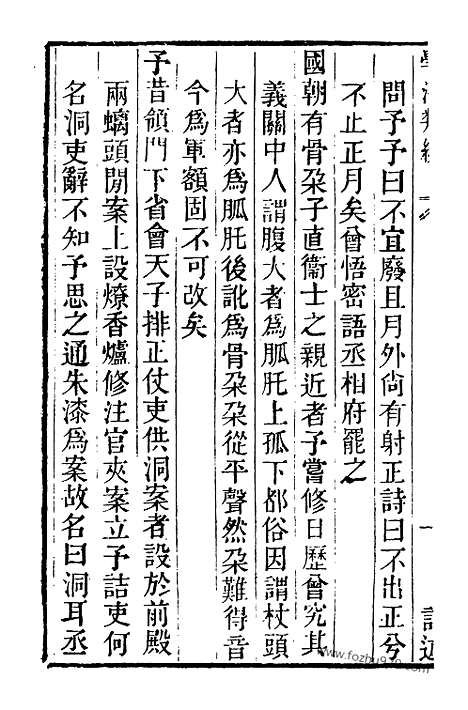 問予予曰不宜廢且月外尙有射正詩曰不出正兮
不止正月矣曾悟密語丞相府罷之
國朝有骨朶子直衞士之親近者予嘗修日歷曾究其
義關中人謂腹大者爲胍肫上孤下都俗因謂杖頭
大者亦爲胍肫後訛爲骨朶朶從平聲然朶難得音
今爲軍額固不可改矣
予昔領門下省會天子排正仗吏供洞案者設於前殿
兩螭頭閒案上設燎香爐修注官夾案立予詰吏何
名洞吏辭不知予思之通朱漆爲案故名曰洞耳丞
www.fozhu920.com